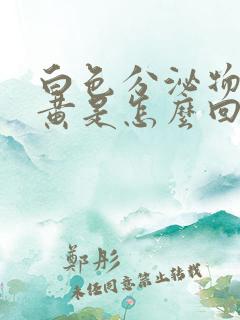 白色分泌物
黄是怎麼回
鄭彤
未任同意禁止转载